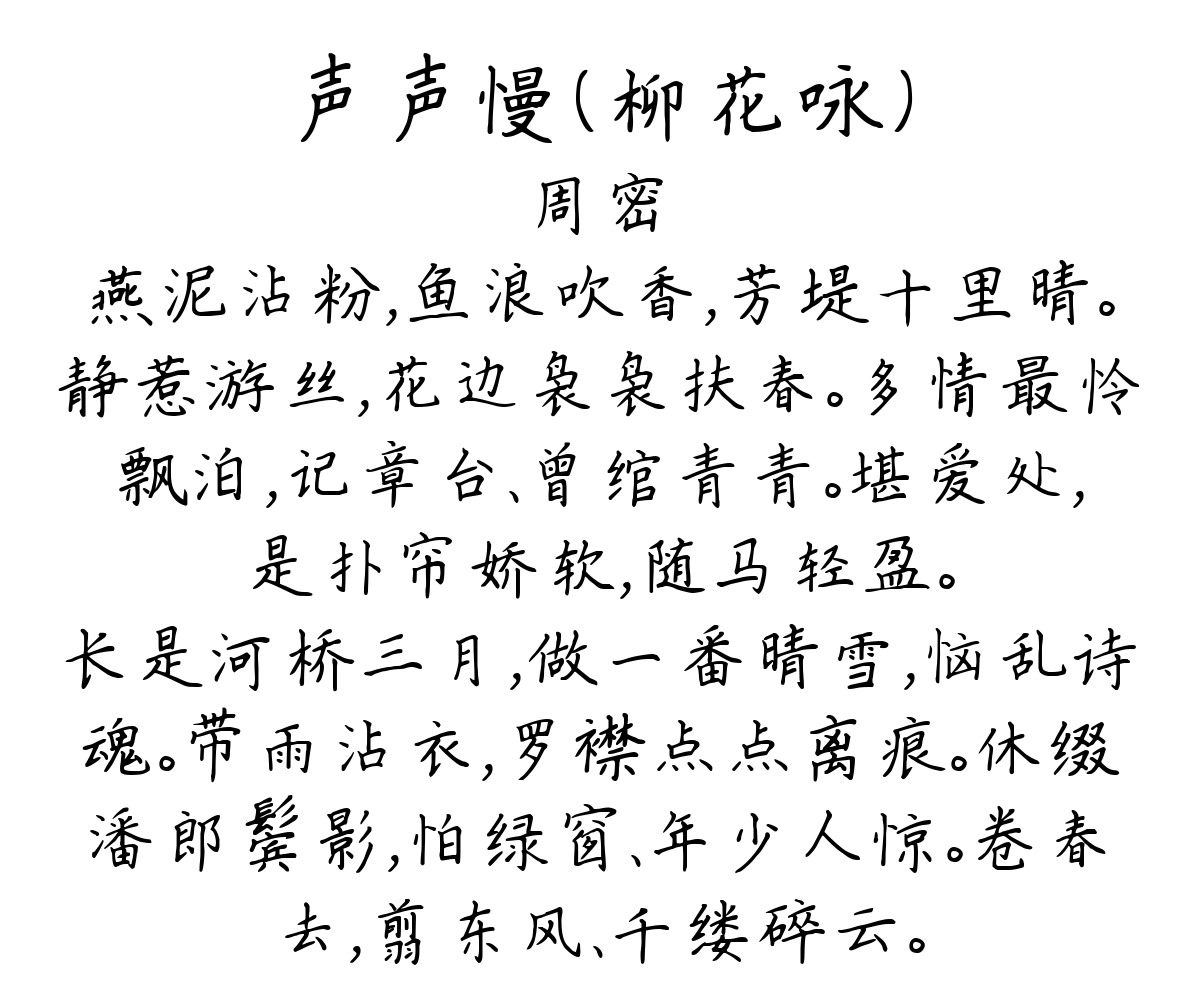 声声慢(柳花咏)
周密
燕泥沾粉,鱼浪吹香,芳堤十里晴。
静惹游丝,花边袅袅扶春。多情最怜
飘泊,记章台、曾绾青青。堪爱处,
是扑帘娇软,随马轻盈。
长是河桥三月,做一番晴雪,恼乱诗
魂。带雨沾衣,罗襟点点离痕。休缀
潘郎鬓影,怕绿窗、年少人惊。卷春
去,翦东风、千缕碎云。